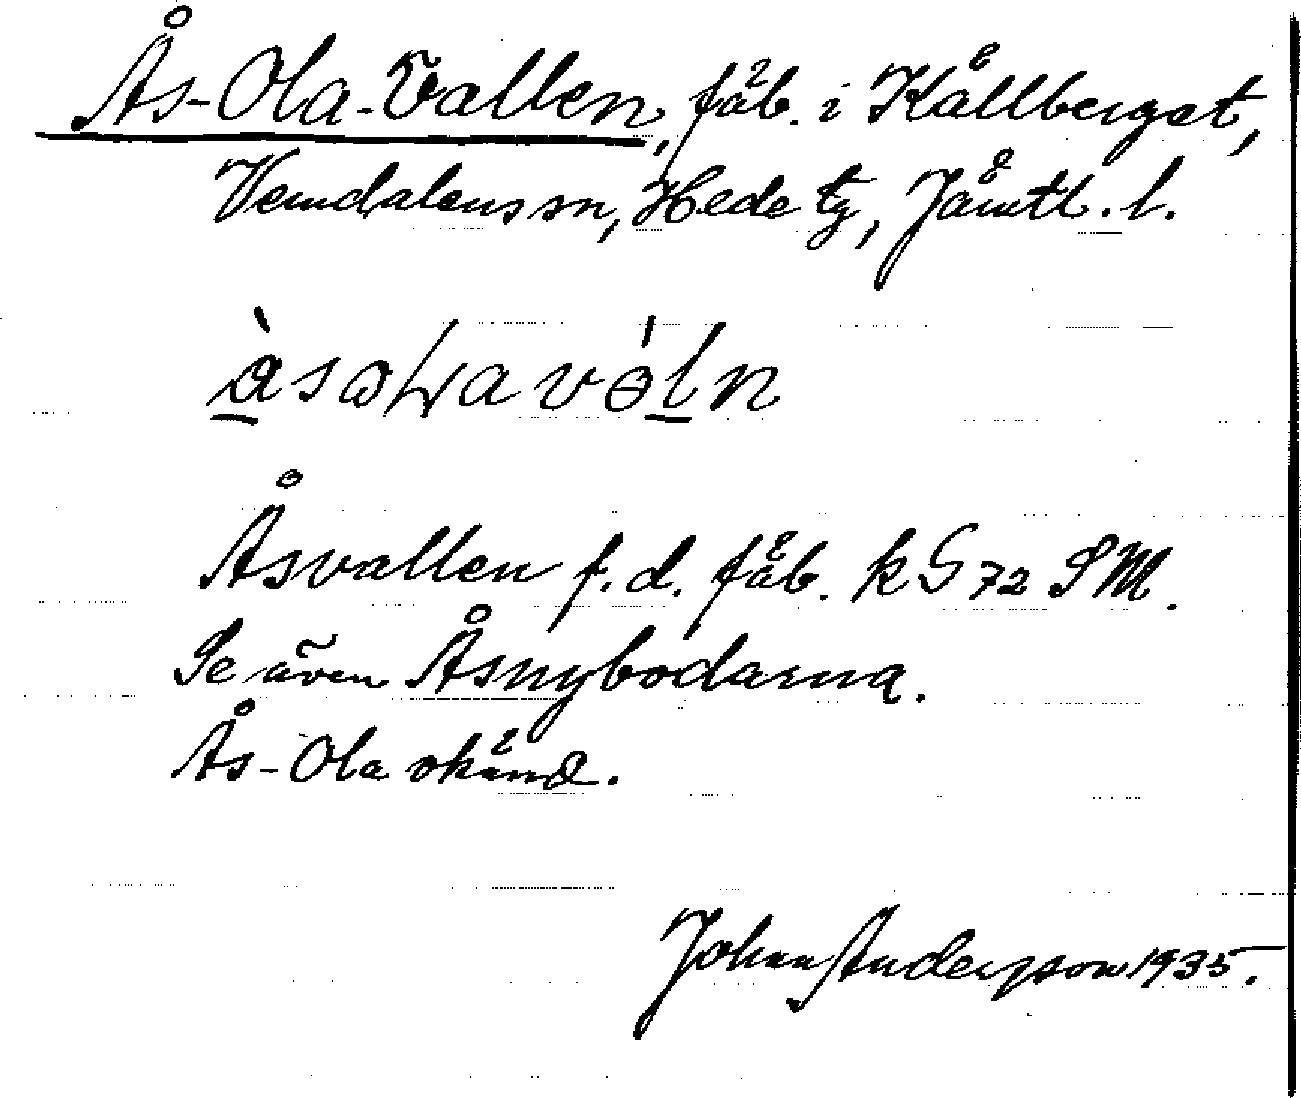 Ås-Ola-Vallen, fäb. i Kålberget,
Vemdalens sn, Hede tg, Jämtl. l.
Åsvallen f. d. fäb. k G 72 SM.
Se även Åsnybodarna.
Ås-Ola okänd.
Johan Anderson 1935.